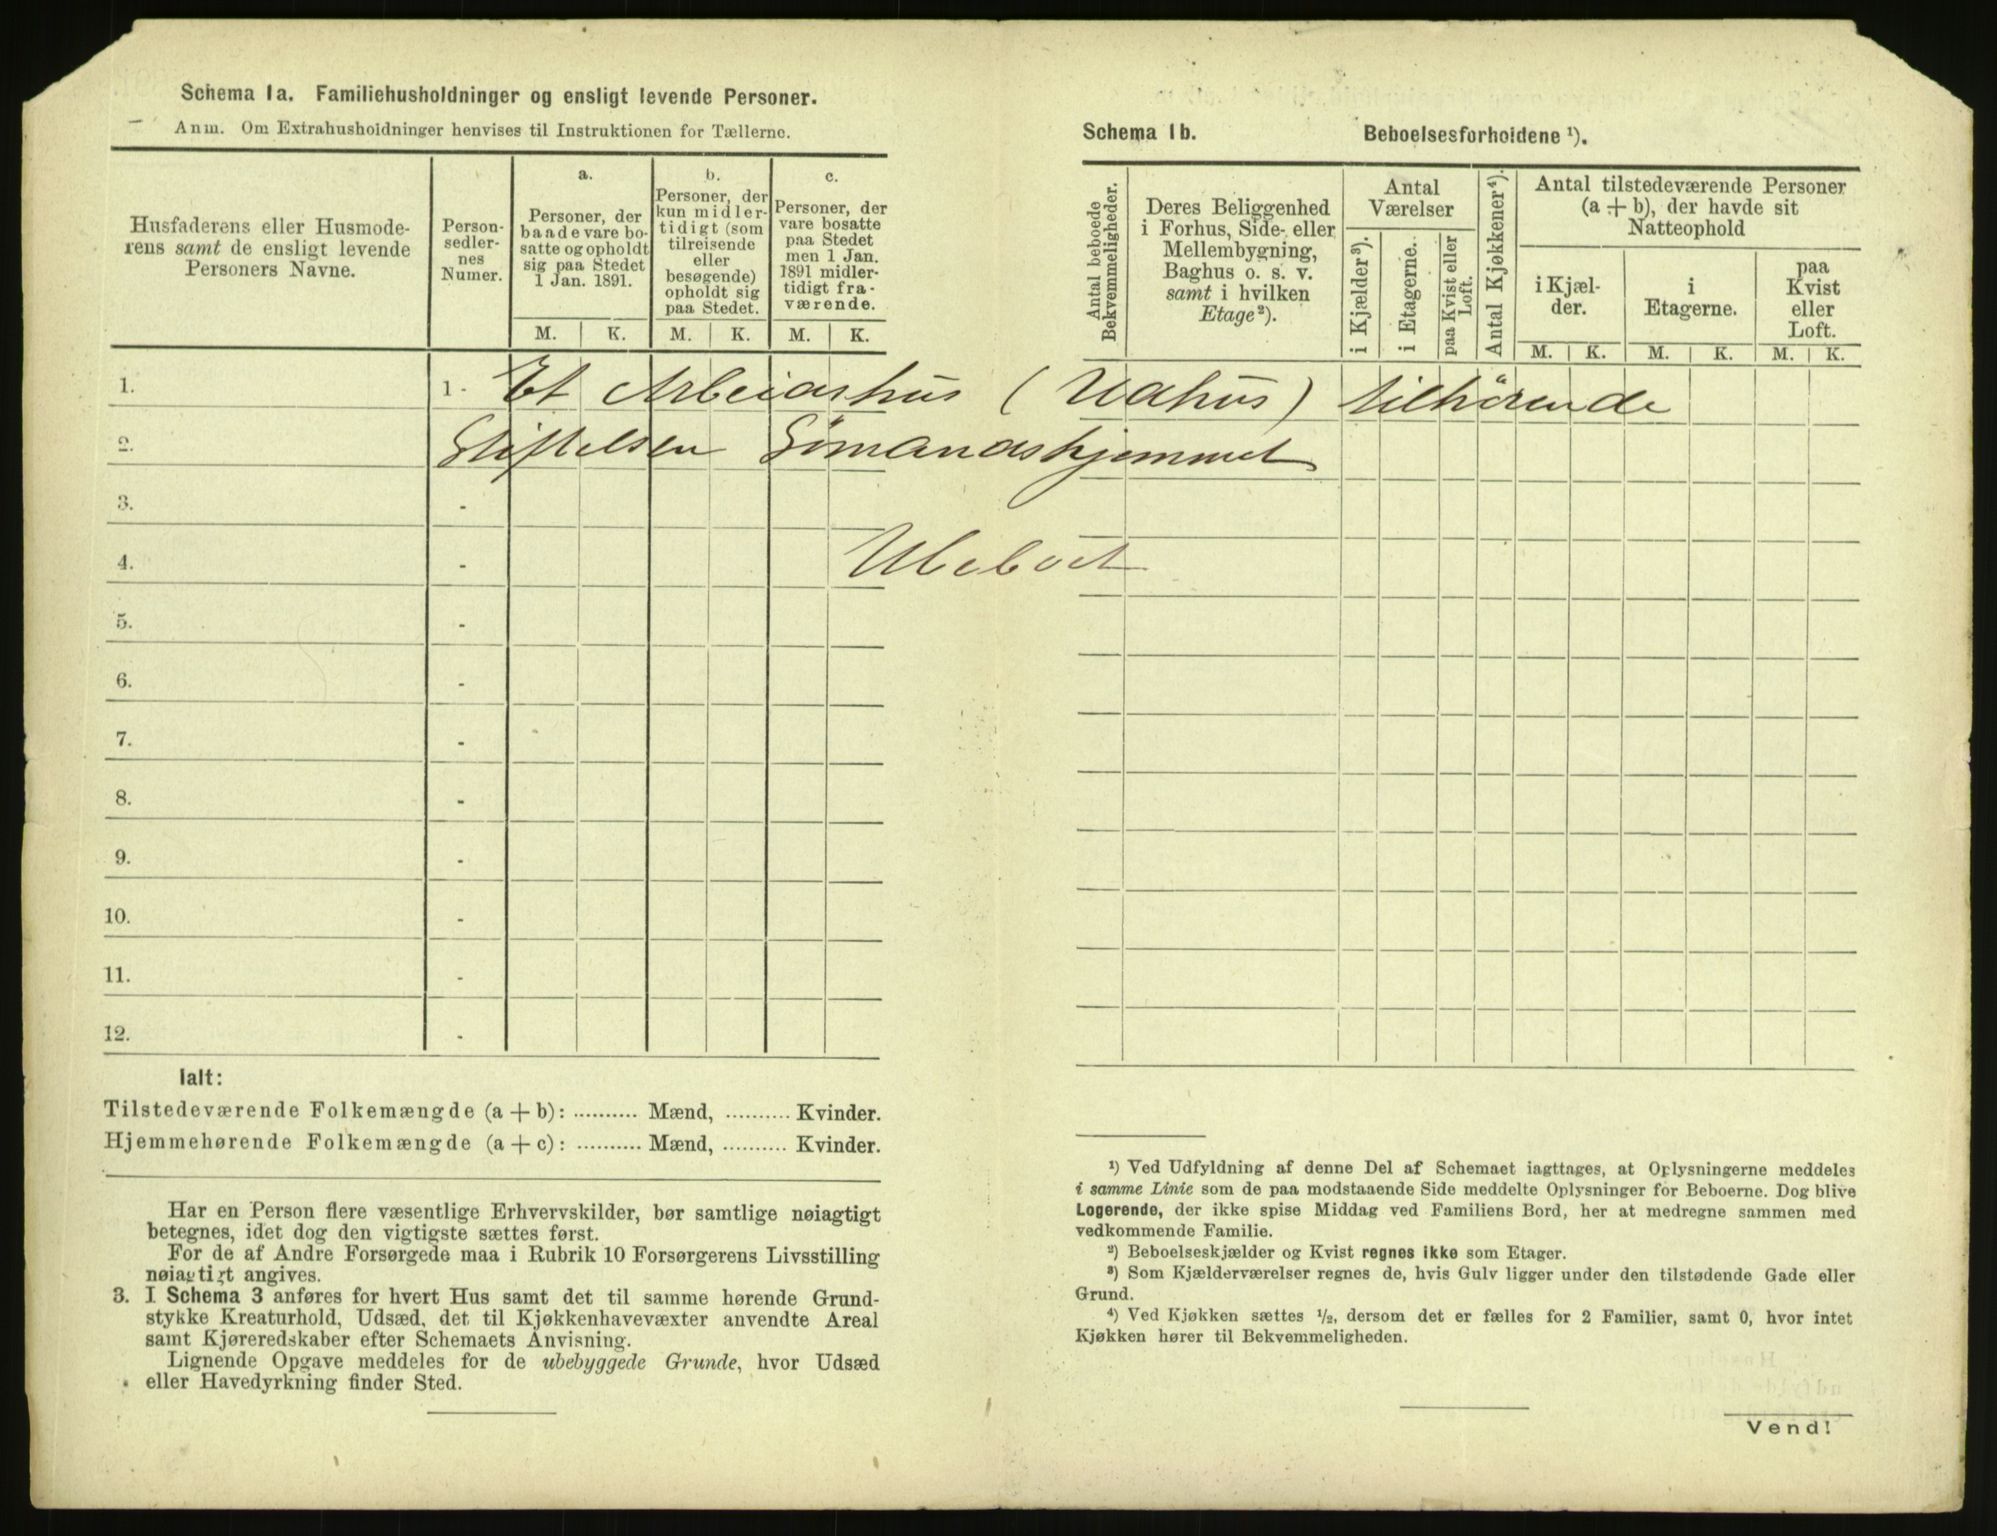 Schema 1a. Familiehusholdninger og ensligt levende Personer.
Anm. Om Extrahusholdninger henvises til Instruktionen for Tællerne.
Husfaderens eller Husmode-
rens samt de ensligt levende
Personers Navne.
Person-
sedler-
nes
Numer.
a.
Personer, der
baade vare bo-
satte og opholdt
sig paa Stedet
1 Jan. 1891.
b.
Personer, der
kun midler-
tidigt (som
tilreisende
eller
besøgende)
opholdt sig
paa Stedet.
c.
Personer, der
vare bosatte
paa Stedet
men 1 Jan.
1891 midler-
tidigt fra-
værende.
M. K. M. K. M. K.
1. 1 - Et Arbeidshus (Udhus) tilhørende
2. Stiftelsen Sømandshjemmet
3. -
4. - Ubeboet
5. -
6. -
7. -
8. -
9. -
10. -
11. -
12. -
Ialt:
Tilstedeværende Folkemængde (a + b): .......... Mænd, .......... Kvinder.
Hjemmehørende Folkemængde (a + c): .......... Mænd, .......... Kvinder.
Har en Person flere væsentlige Erhvervskilder, bør samtlige nøiagtigt
betegnes, idet dog den vigtigste sættes først.
For de af Andre Forsørgede maa i Rubrik 10 Forsørgerens Livsstilling
nøiagtigt angives.
3. I Schema 3 anføres for hvert Hus samt det til samme hørende Grund-
stykke Kreaturhold, Udsæd, det til Kjøkkenhavevæxter anvendte Areal
samt Kjøreredskaber efter Schemaets Anvisning.
Lignende Opgave meddeles for de ubebyggede Grunde, hvor Udsæd
eller Havedyrkning finder Sted.
Schema 1b. Beboelsesforholdene ¹).
Antal beboede
Bekvemmeligheder.
Deres Beliggenhed
i Forhus, Side- eller
Mellembygning,
Baghus o. s. v.
samt i hvilken
Etage²).
Antal
Værelser
i Kjælder³).
i Etagerne.
paa Kvist eller
Loft.
Antal Kjøkkener⁴).
Antal tilstedeværende Personer
(a + b), der havde sit
Natteophold
i Kjæl-
der.
i
Etagerne.
paa
Kvist
eller
Loft.
M. K. M. K. M. K.
¹) Ved Udfyldning af denne Del af Schemaet iagttages, at Oplysningerne meddeles
i samme Linie som de paa modstaaende Side meddelte Oplysninger for Beboerne. Dog blive
Logerende, der ikke spise Middag ved Familiens Bord, her at medregne sammen med
vedkommende Familie.
²) Beboelseskjælder og Kvist regnes ikke som Etager.
³) Som Kjælderværelser regnes de, hvis Gulv ligger under den tilstødende Gade eller
Grund.
⁴) Ved Kjøkken sættes ½, dersom det er fælles for 2 Familier, samt 0, hvor intet
Kjøkken hører til Bekvemmeligheden.
Vend!